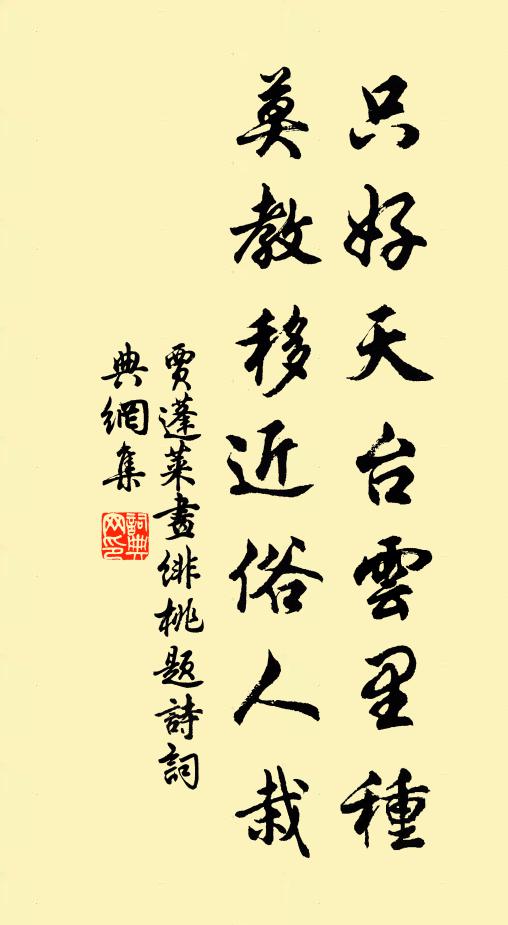 只好天台雲里種
莫教移近俗人栽
賈蓬萊畫緋桃題詩詞
典網集
詞典
網印